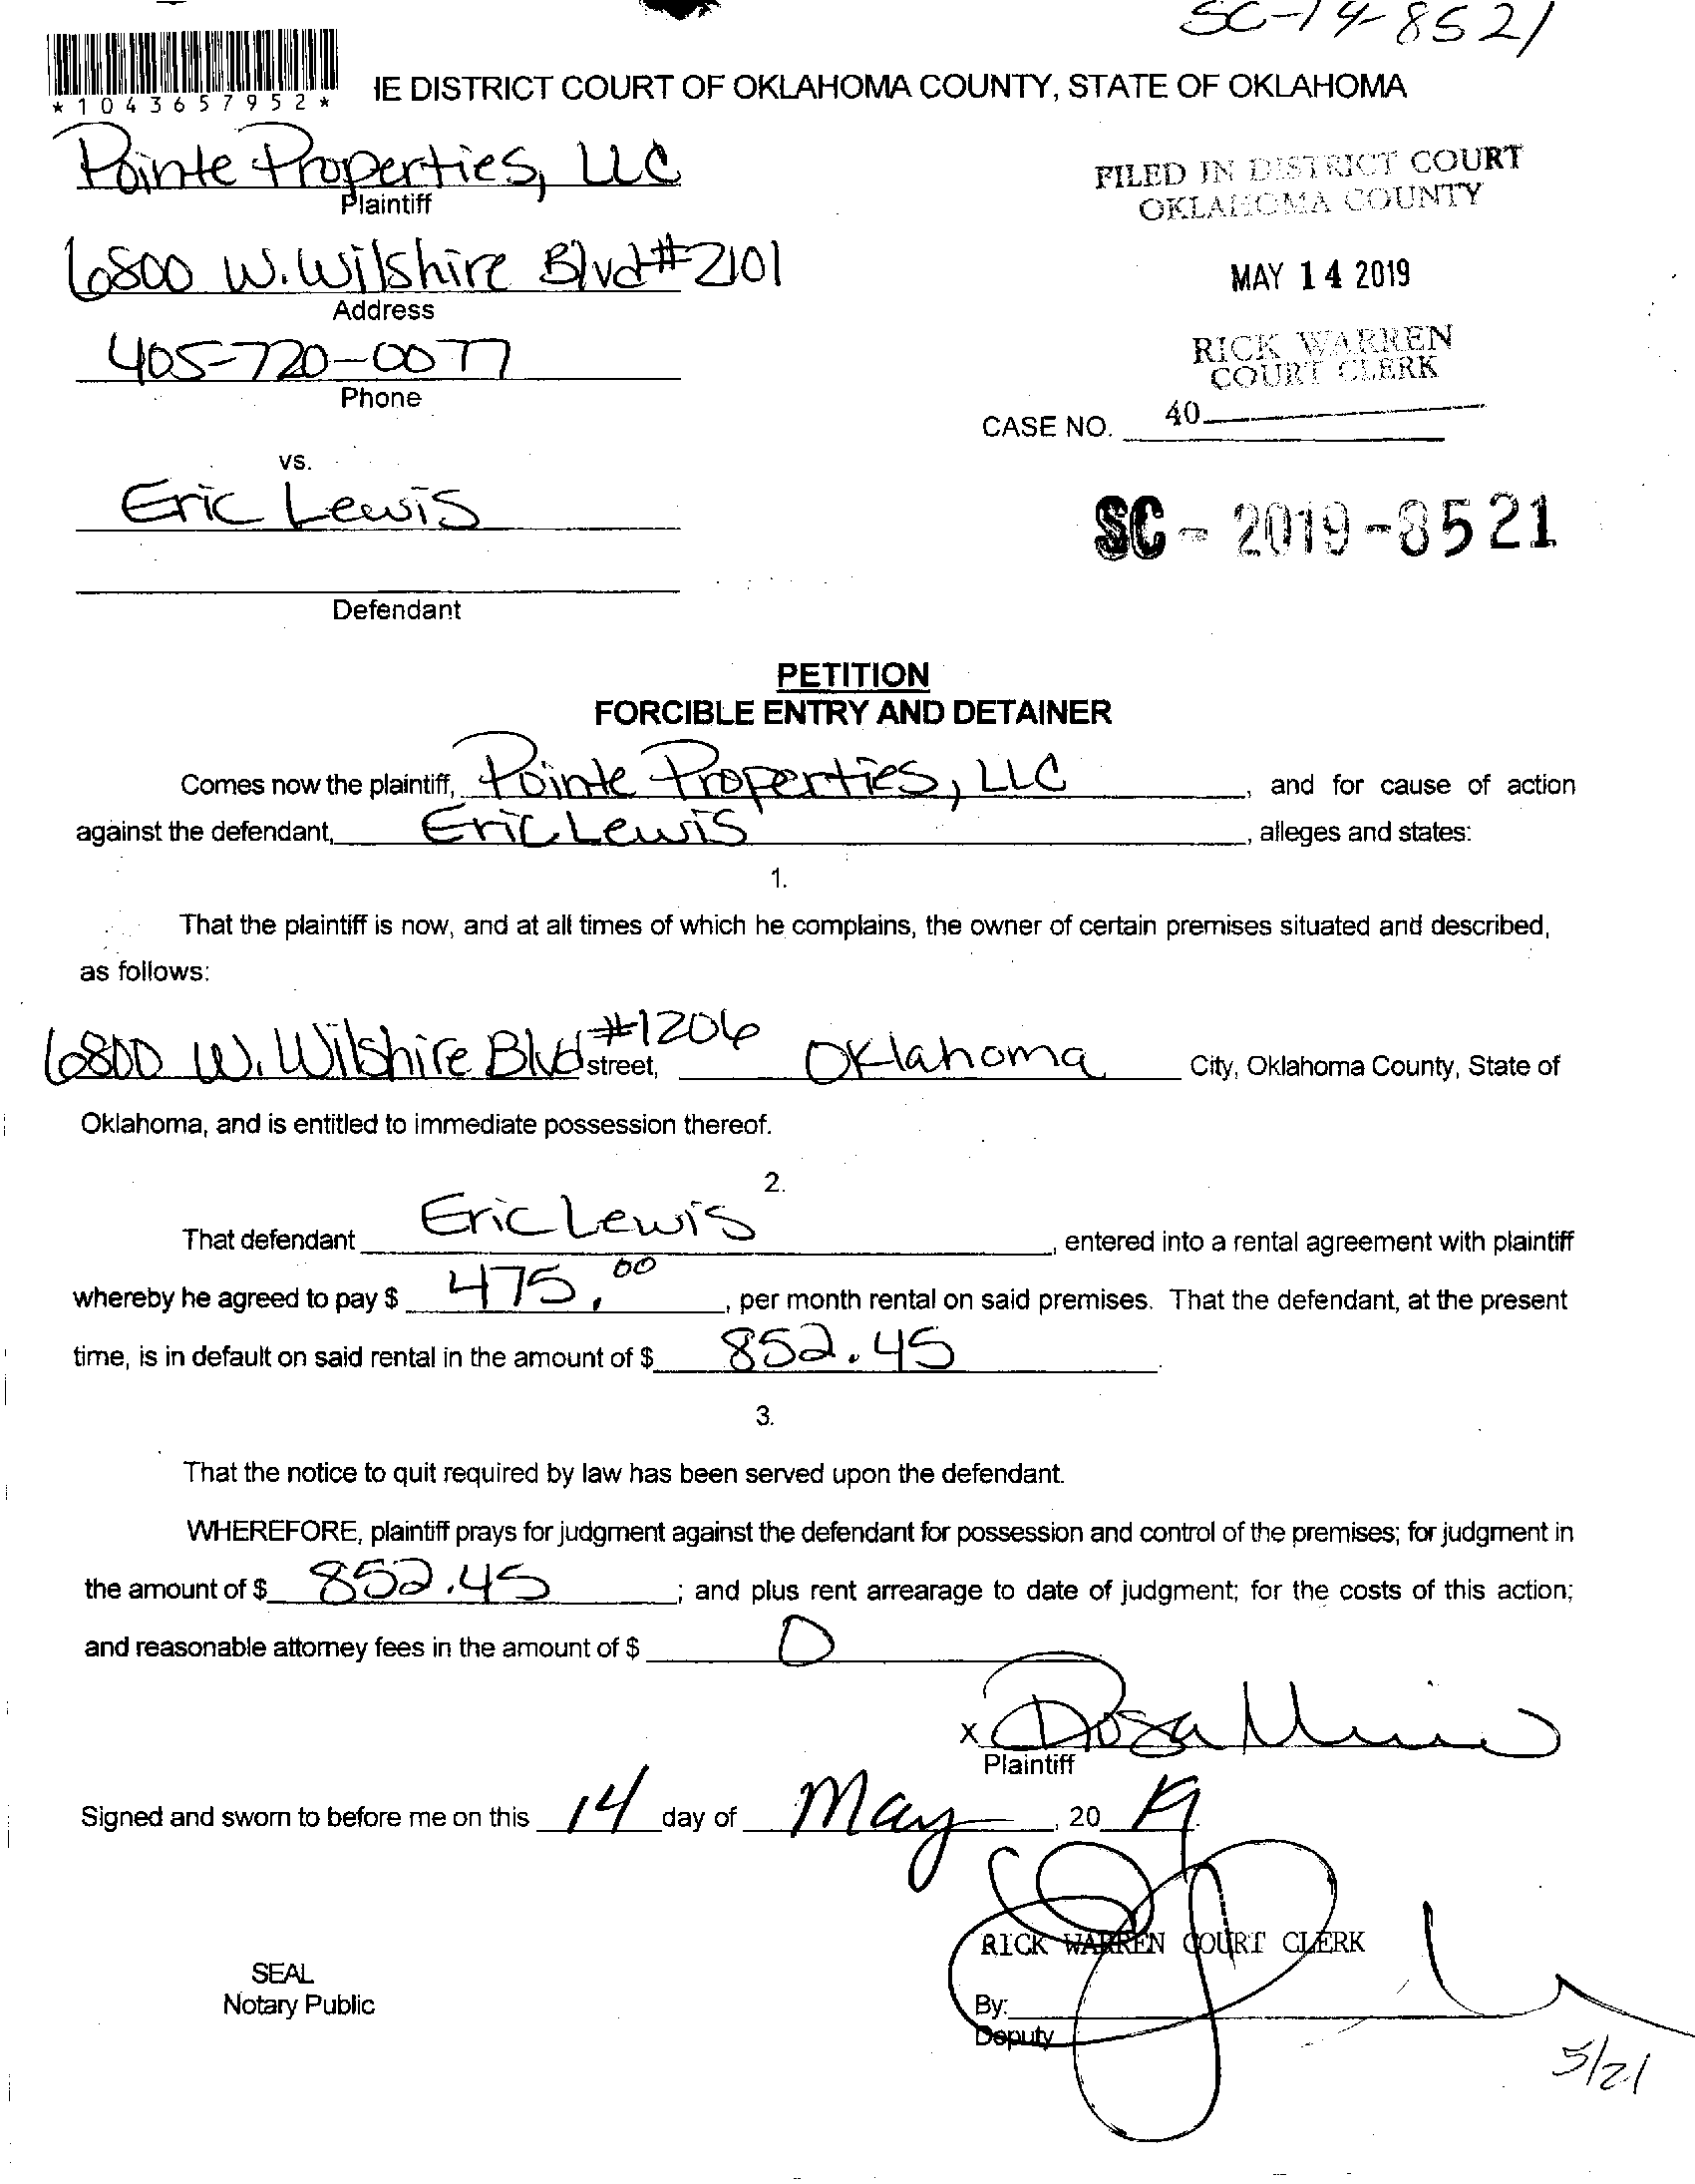 SC-19-8521
*1043657952*
IE DISTRICT COURT OF OKLAHOMA COUNTY, STATE OF OKLAHOMA
Pointe Properties, LLC
Plaintiff
FILED IN DISTRICT COURT
OKLAHOMA COUNTY
6800 W. Wilshire Blvd #2101
Address
MAY 14 2019
405-720-0077
Phone
RICK WARREN
COURT CLERK
40
CASE NO.
vs.
Eric Lewis
SC - 2019-8521
Defendant
PETITION
FORCIBLE ENTRY AND DETAINER
Comes now the plaintiff, Pointe Properties, LLC, and for cause of action
against the defendant, Eric Lewis, alleges and states:
1.
That the plaintiff is now, and at all times of which he complains, the owner of certain premises situated and described,
as follows:
6800 W. Wilshire Blvd #1206 street, Oklahoma City, Oklahoma County, State of
Oklahoma, and is entitled to immediate possession thereof.
2.
That defendant Eric Lewis, entered into a rental agreement with plaintiff
whereby he agreed to pay $ 475.00, per month rental on said premises. That the defendant, at the present
time, is in default on said rental in the amount of $ 852.45.
3.
That the notice to quit required by law has been served upon the defendant.
WHEREFORE, plaintiff prays for judgment against the defendant for possession and control of the premises; for judgment in
the amount of $ 852.45; and plus rent arrearage to date of judgment; for the costs of this action;
and reasonable attorney fees in the amount of $ 0
X Rosa
Plaintiff
Signed and sworn to before me on this 14 day of May, 20 19.
RICK WARREN COURT CLERK
SEAL
Notary Public
By:
Deputy
5/21